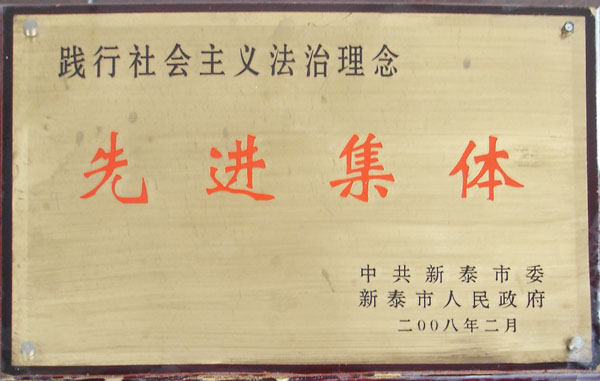 践行社会主义法治理念
先进集体
中共新泰市委
新泰市人民政府
二00八年二月